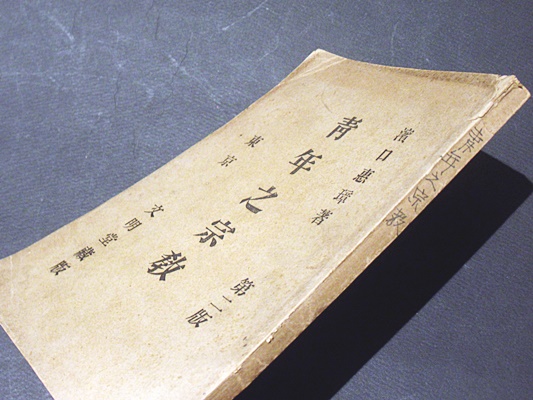 濱口惠璋著
第二版
青年之宗教
東京
文明堂藏版
青年之宗教